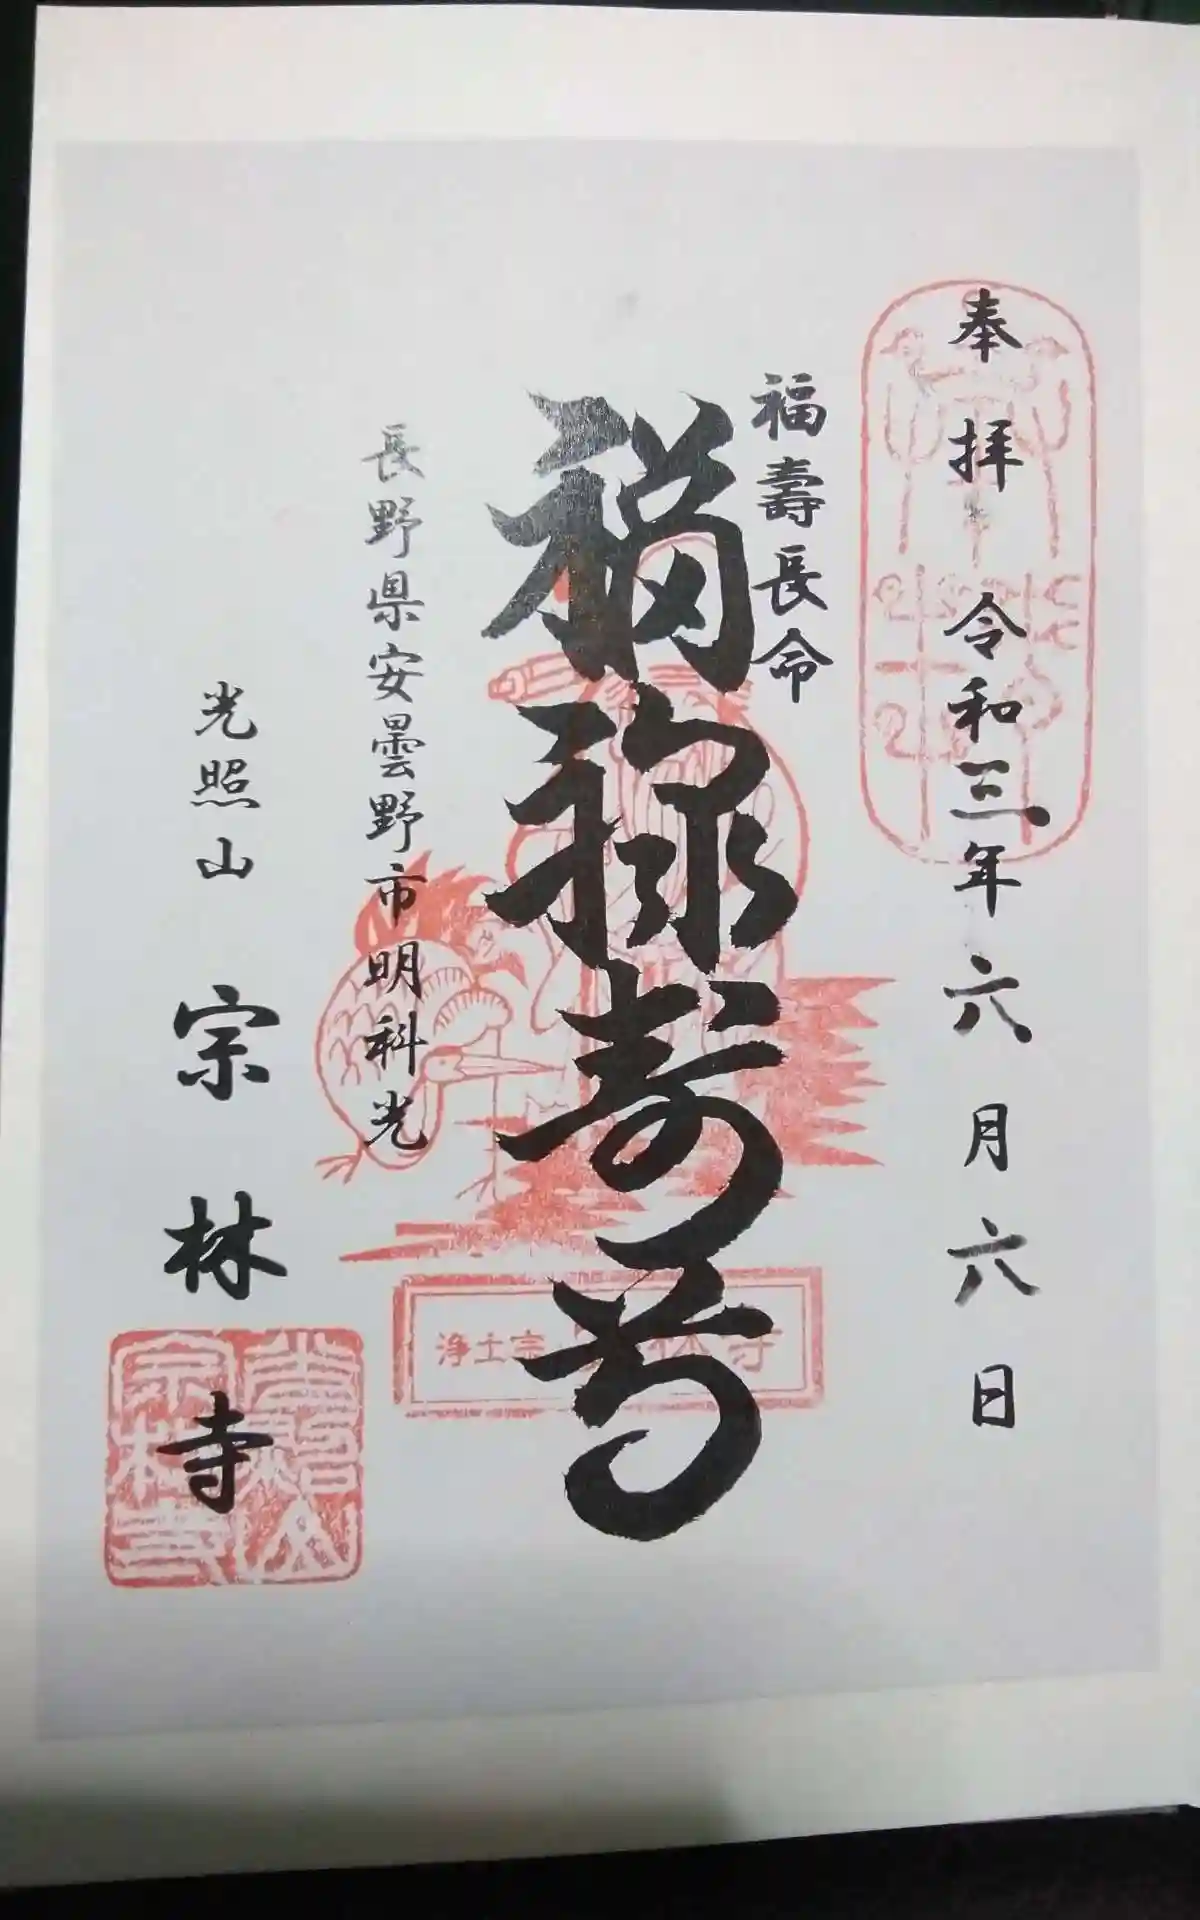 奉拝 令和三年六月六日
福壽長命
福禄寿尊
長野県安曇野市明科光
光照山 宗林寺
浄土宗 林寺